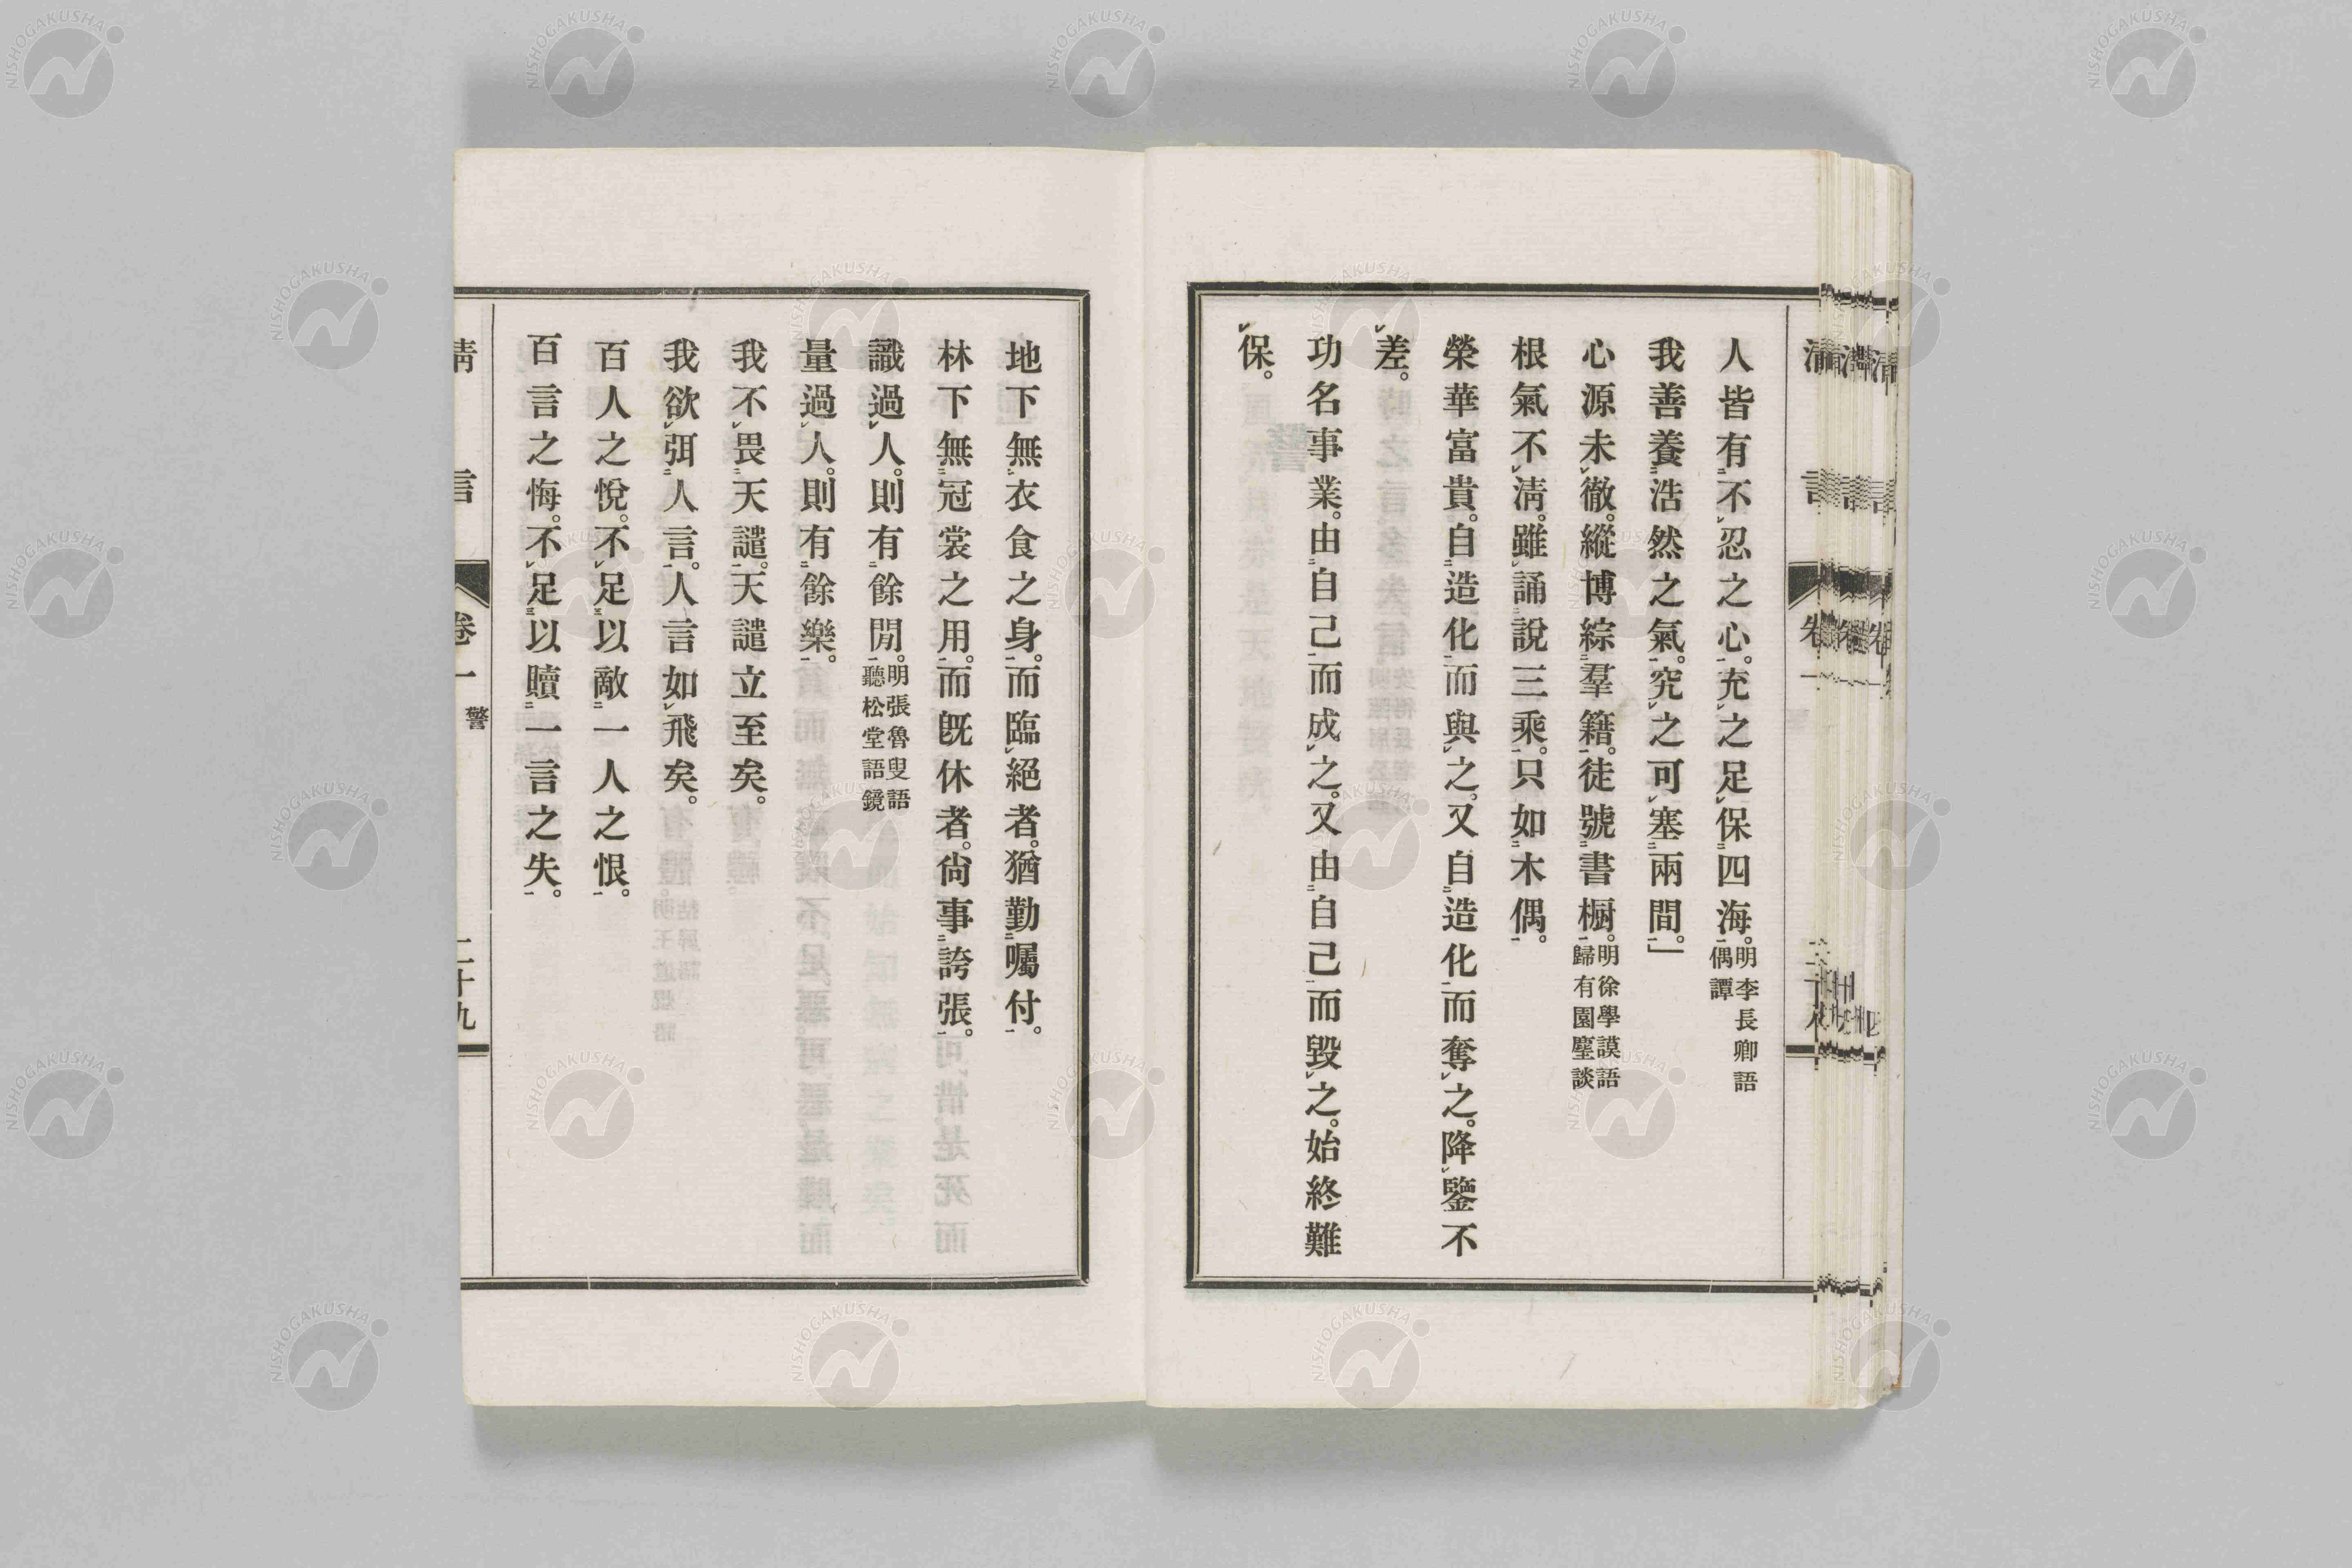 清言
卷一
二十八
人皆有不忍之心。充之足保四海。明李長卿語偶譚
我善養浩然之氣。究之可塞兩間。」
心源未徹。縱博綜羣籍。徒號書橱。明徐學謨語歸有園麈談
根氣不淸。雖誦說三乘。只如木偶。
榮華富貴。自造化而與之。又自造化而奪之。降鑒不
差。
功名事業。由自己而成之。又由自己而毀之。始終難
保。
地下無衣食之身。而臨絕者。猶勤囑付。
林下無冠裳之用。而旣休者。尙事誇張。
識過人。則有餘閒。明張魯叟語聽松堂語鏡
量過人。則有餘樂。
我不畏天譴。天譴立至矣。
我欲弭人言。人言如飛矣。
百人之悅。不足以敵一人之恨。
百言之悔。不足以贖一言之失。
淸言
卷一
警
二十九
NISHOGAKUSHA